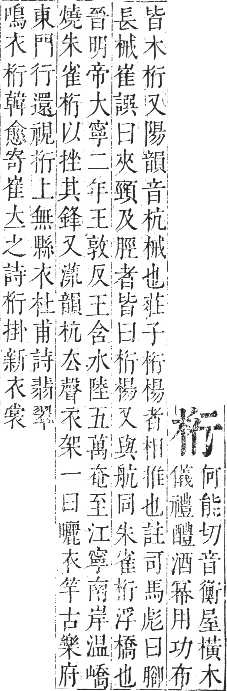 桁
何能切音衡屋橫木
儀禮醴酒冪用功布
皆木桁又陽韻音杭械也莊子桁楊者相推也註司馬彪曰腳
長械崔誤曰夾頸及脛者皆曰桁楊又與航同朱雀桁浮橋也
晉明帝大寧二年王敦反王含水陸五萬奄至江寧南岸温嶠
燒朱雀桁以挫其鋒又漾韻杭去聲衣架一曰曬衣竿古樂府
東門行還視桁上無縣衣杜甫詩翡翠
鳴衣桁韓愈寄崔立之詩桁掛新衣裳